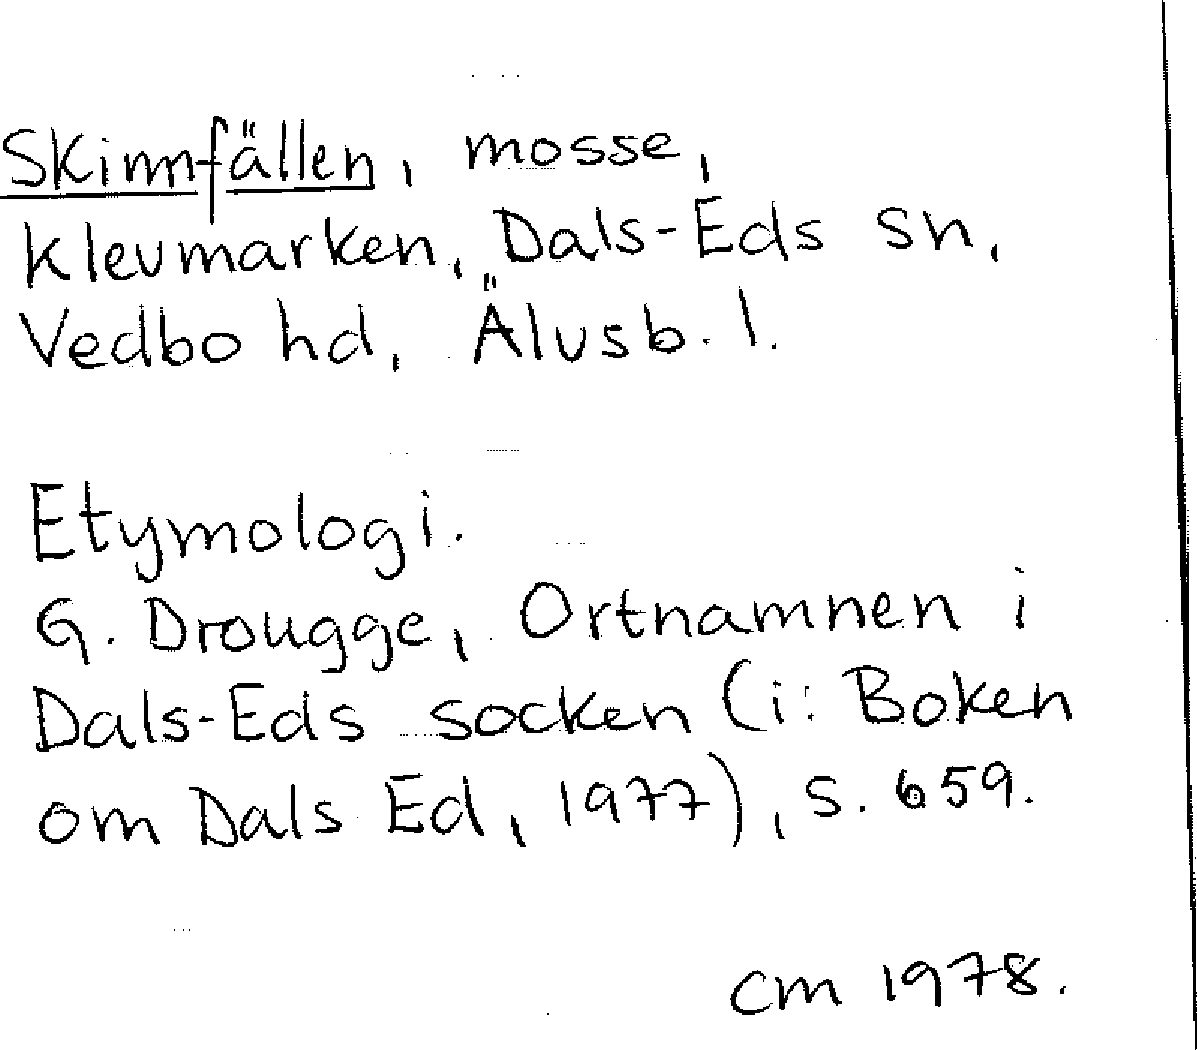 Skinnfällen, mosse,
Klevmarken, Dals-Eds sn,
Vedbo hd, Älvsb. l.
Etymologi.
G. Drougge, Ortnamnen i
Dals-Eds socken (i: Boken
om Dals Ed, 1977), s. 659.
CM 1978.